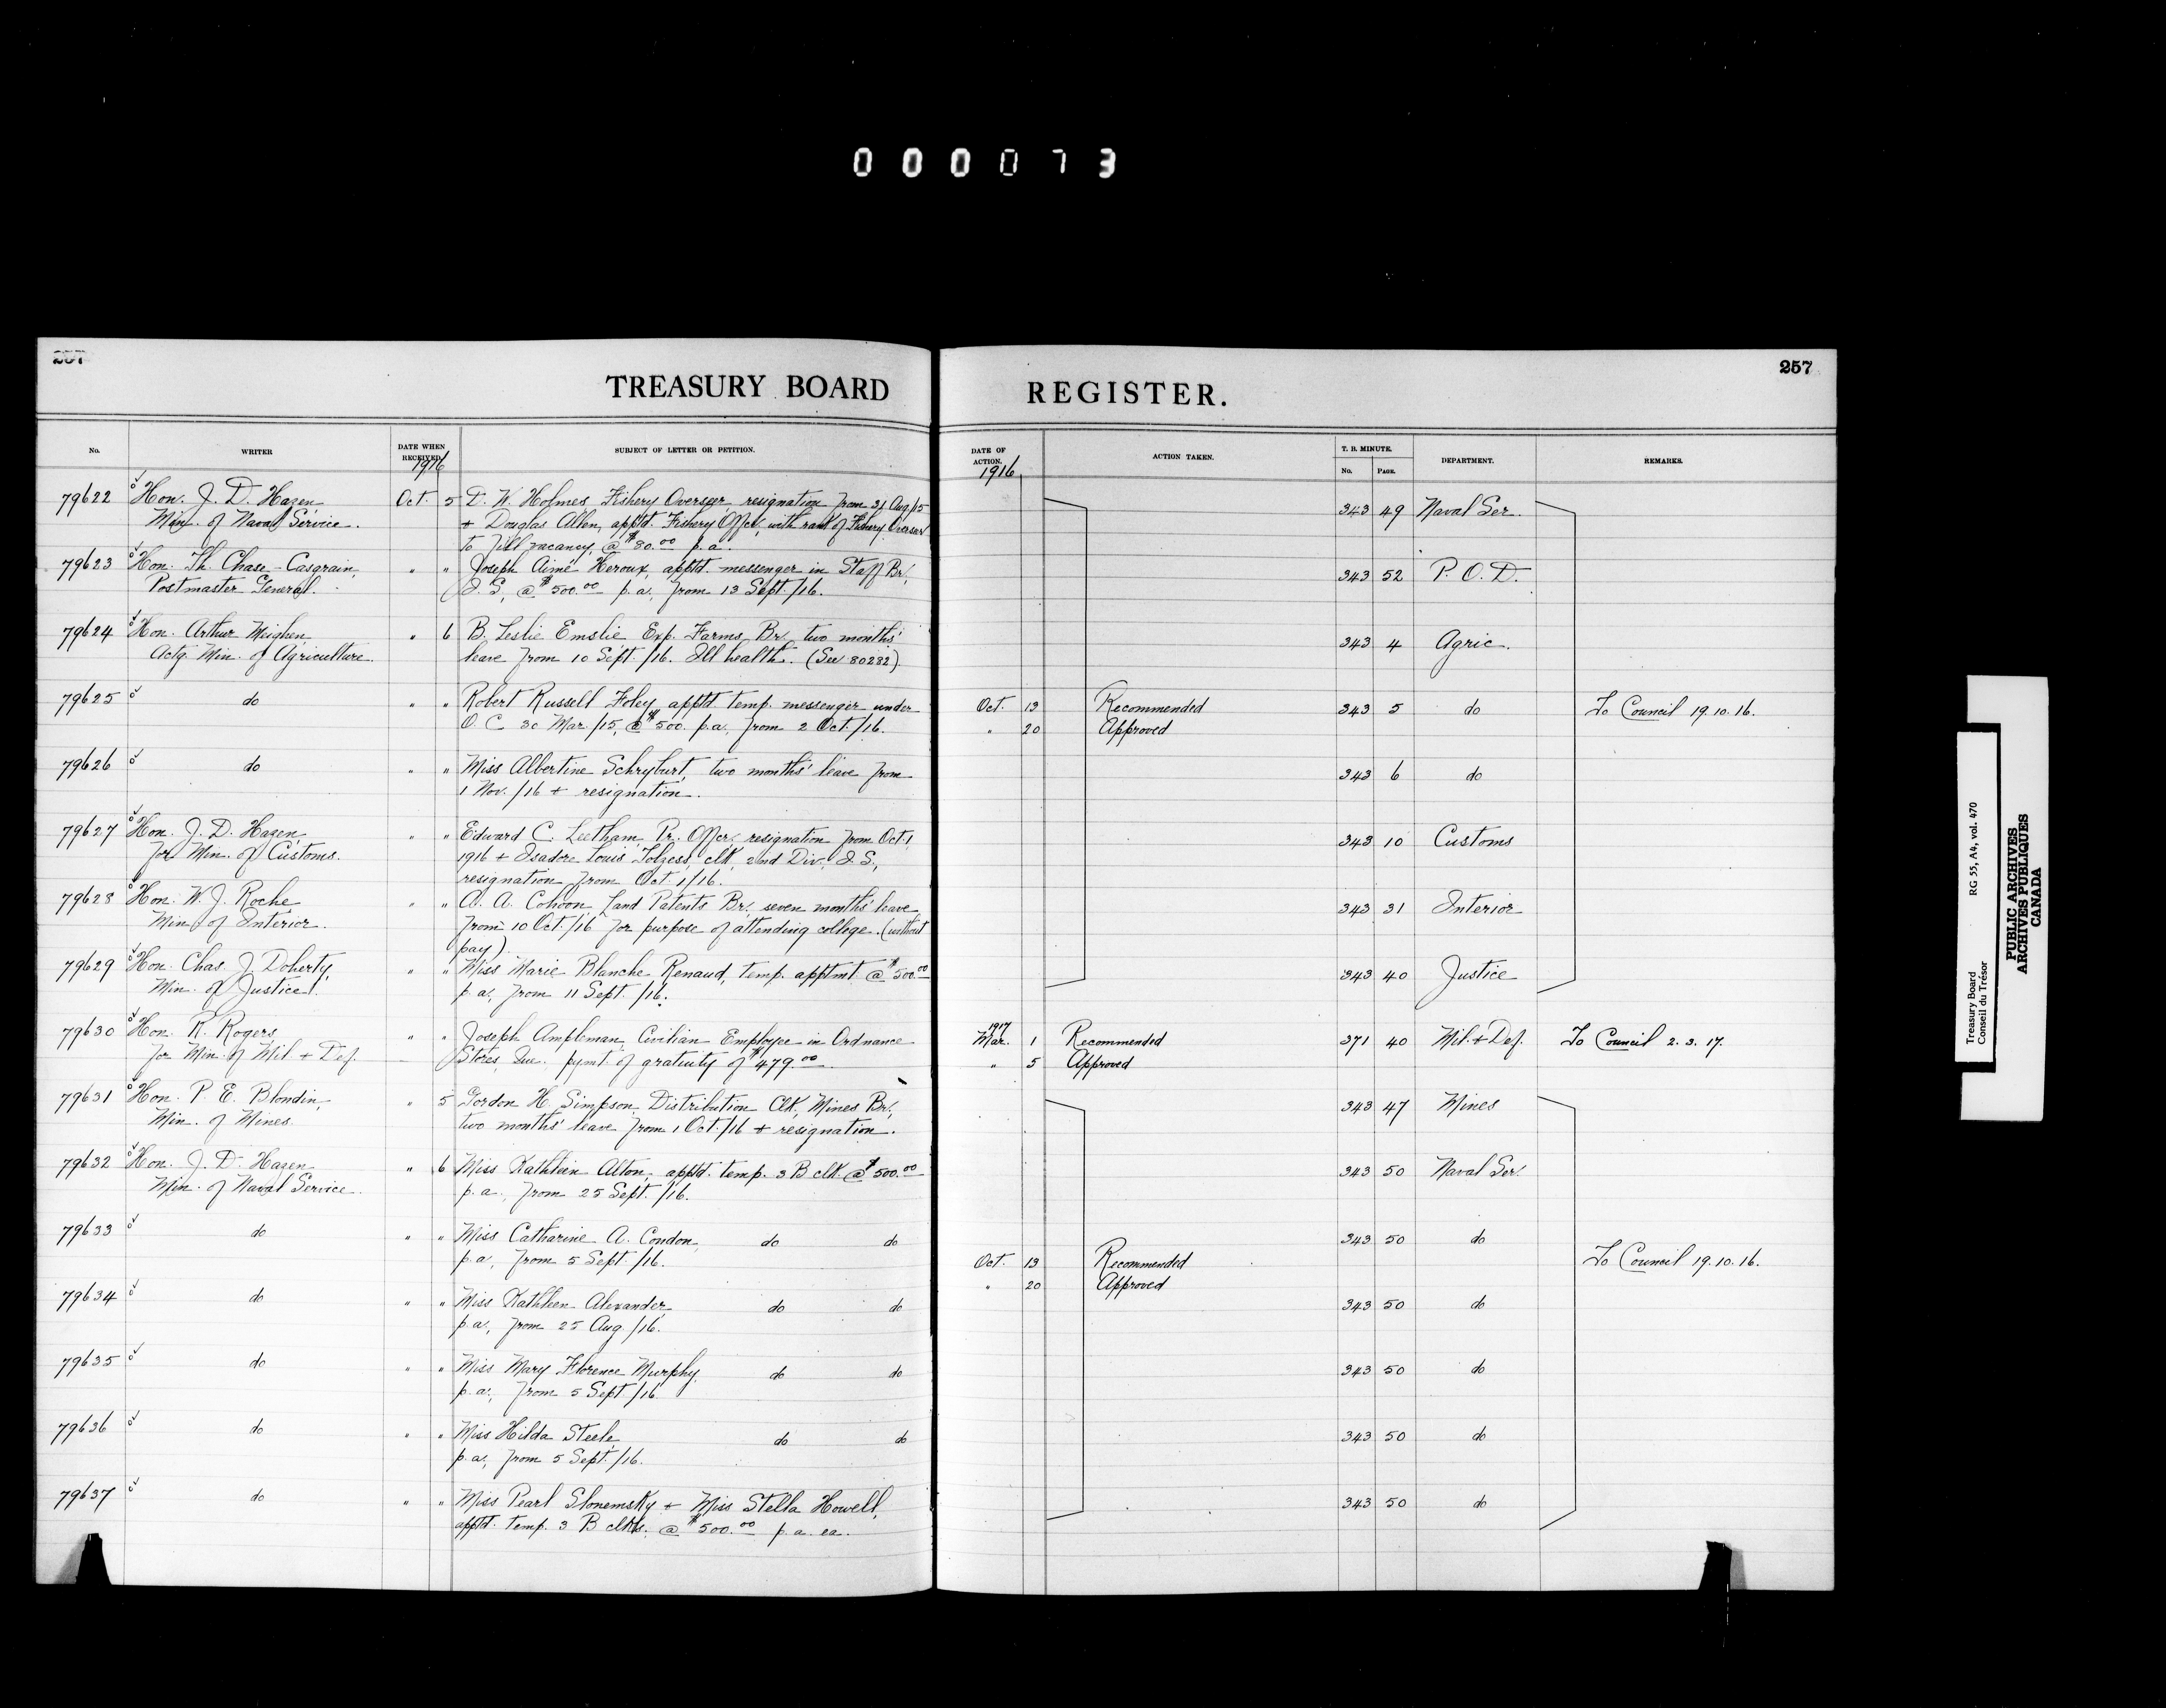 000073
257
257
TREASURY BOARD REGISTER.
No. WRITER DATE WHEN RECEIVED SUBJECT OF LETTER OR PETITION. DATE OF ACTION. ACTION TAKEN. T. B. MINUTE. No. PAGE. DEPARTMENT. REMARKS.
1916 1916
79622 Hon. J. D. Hazen Oct. 5 D. W. Holmes, Fishery Overseer, resignation from 31 Aug/15 343 49 Naval Ser.
Min. of Naval Service. + Douglas Allen, apptd. Fishery Offcr, with rank of Fishery Overseer
to fill vacancy, @ $80.00 p.a.
79623 Hon. Th. Chase-Casgrain, " " Joseph Aimé Heroux, apptd. messenger in Staff Br., 343 52 P. O. D.
Postmaster General. I. S., @ $500.00 p.a., from 13 Sept./16.
79624 Hon. Arthur Meighen " 6 B. Leslie Emslie Exp. Farms Br., two months' 343 4 Agric.
Actg. Min. of Agriculture. leave from 10 Sept./16. Ill health. (See 80232)
79625 do " " Robert Russell Foley apptd temp. messenger under Oct. 13 Recommended 343 5 do To Council 19.10.16.
O. C. 30 Mar./15, @ $500. p.a., from 2 Oct./16. " 20 Approved
79626 do " " Miss Albertine Schryburt, two months' leave from 343 6 do
1 Nov./16 + resignation.
79627 Hon. J. D. Hazen " " Edward C. Leetham, Pr. Offcr., resignation from Oct. 1 343 10 Customs
for Min. of Customs. 1916 + Isadore Louis clk, 2nd Div., I. S.,
resignation from Oct. 1/16.
79628 Hon. W. J. Roche " " A. A. Cohoon, Land Patents Br., seven months' leave 343 31 Interior
Min. of Interior. from 10 Oct./16 for purpose of attending college. (without
pay).
79629 Hon. Chas. J. Doherty, " " Miss Marie Blanche Renaud, temp. apptmt. @ $500.00 343 40 Justice
Min. of Justice. p.a., from 11 Sept./16.
79630 Hon. R. Rogers " " Joseph Ampleman, Civilian Employee in Ordnance 1917 Mar. 1 Recommended 371 40 Mil. + Def. To Council 2.3.17.
for Min. of Mil. + Def. Stores, Que. pymt. of gratuity of $479.00 " 5 Approved
79631 Hon. P. E. Blondin, " 5 Gordon H. Simpson, Distribution Clk., Mines Br., 343 47 Mines
Min. of Mines. two months' leave from 1 Oct./16 + resignation.
79632 Hon. J. D. Hazen " 6 Miss Kathleen Alton, apptd. temp. 3 B clk @ $500.00 343 50 Naval Ser.
Min. of Naval Service. p.a., from 25 Sept./16.
79633 do " " Miss Catharine A. Condon, do do 343 50 do
p.a., from 5 Sept./16. Oct. 13 Recommended To Council 19.10.16.
" 20 Approved
79634 do " " Miss Kathleen Alexander, do do 343 50 do
p.a., from 25 Aug./16.
79635 do " " Miss Mary Florence Murphy, do do 343 50 do
p.a., from 5 Sept/16
79636 do " " Miss Hilda Steele do do 343 50 do
p.a., from 5 Sept./16.
79637 do " " Miss Pearl Slonemsky + Miss Stella Howell, 343 50 do
apptd. temp. 3 B clks. @ $500.00 p.a. ea.
Treasury Board RG 55, A4, vol. 470
Conseil du Trésor
PUBLIC ARCHIVES
ARCHIVES PUBLIQUES
CANADA